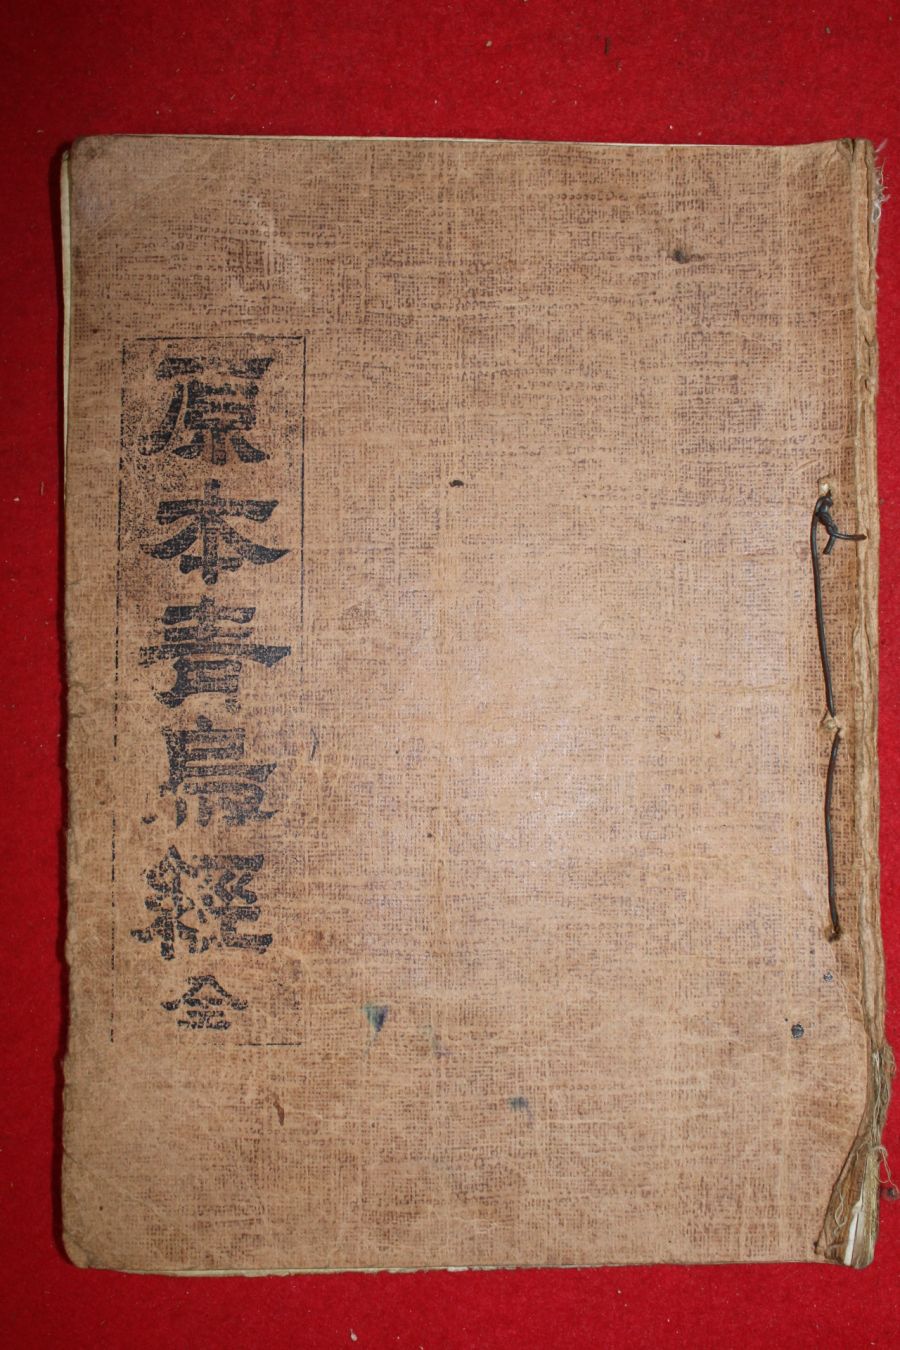 原本青烏經全